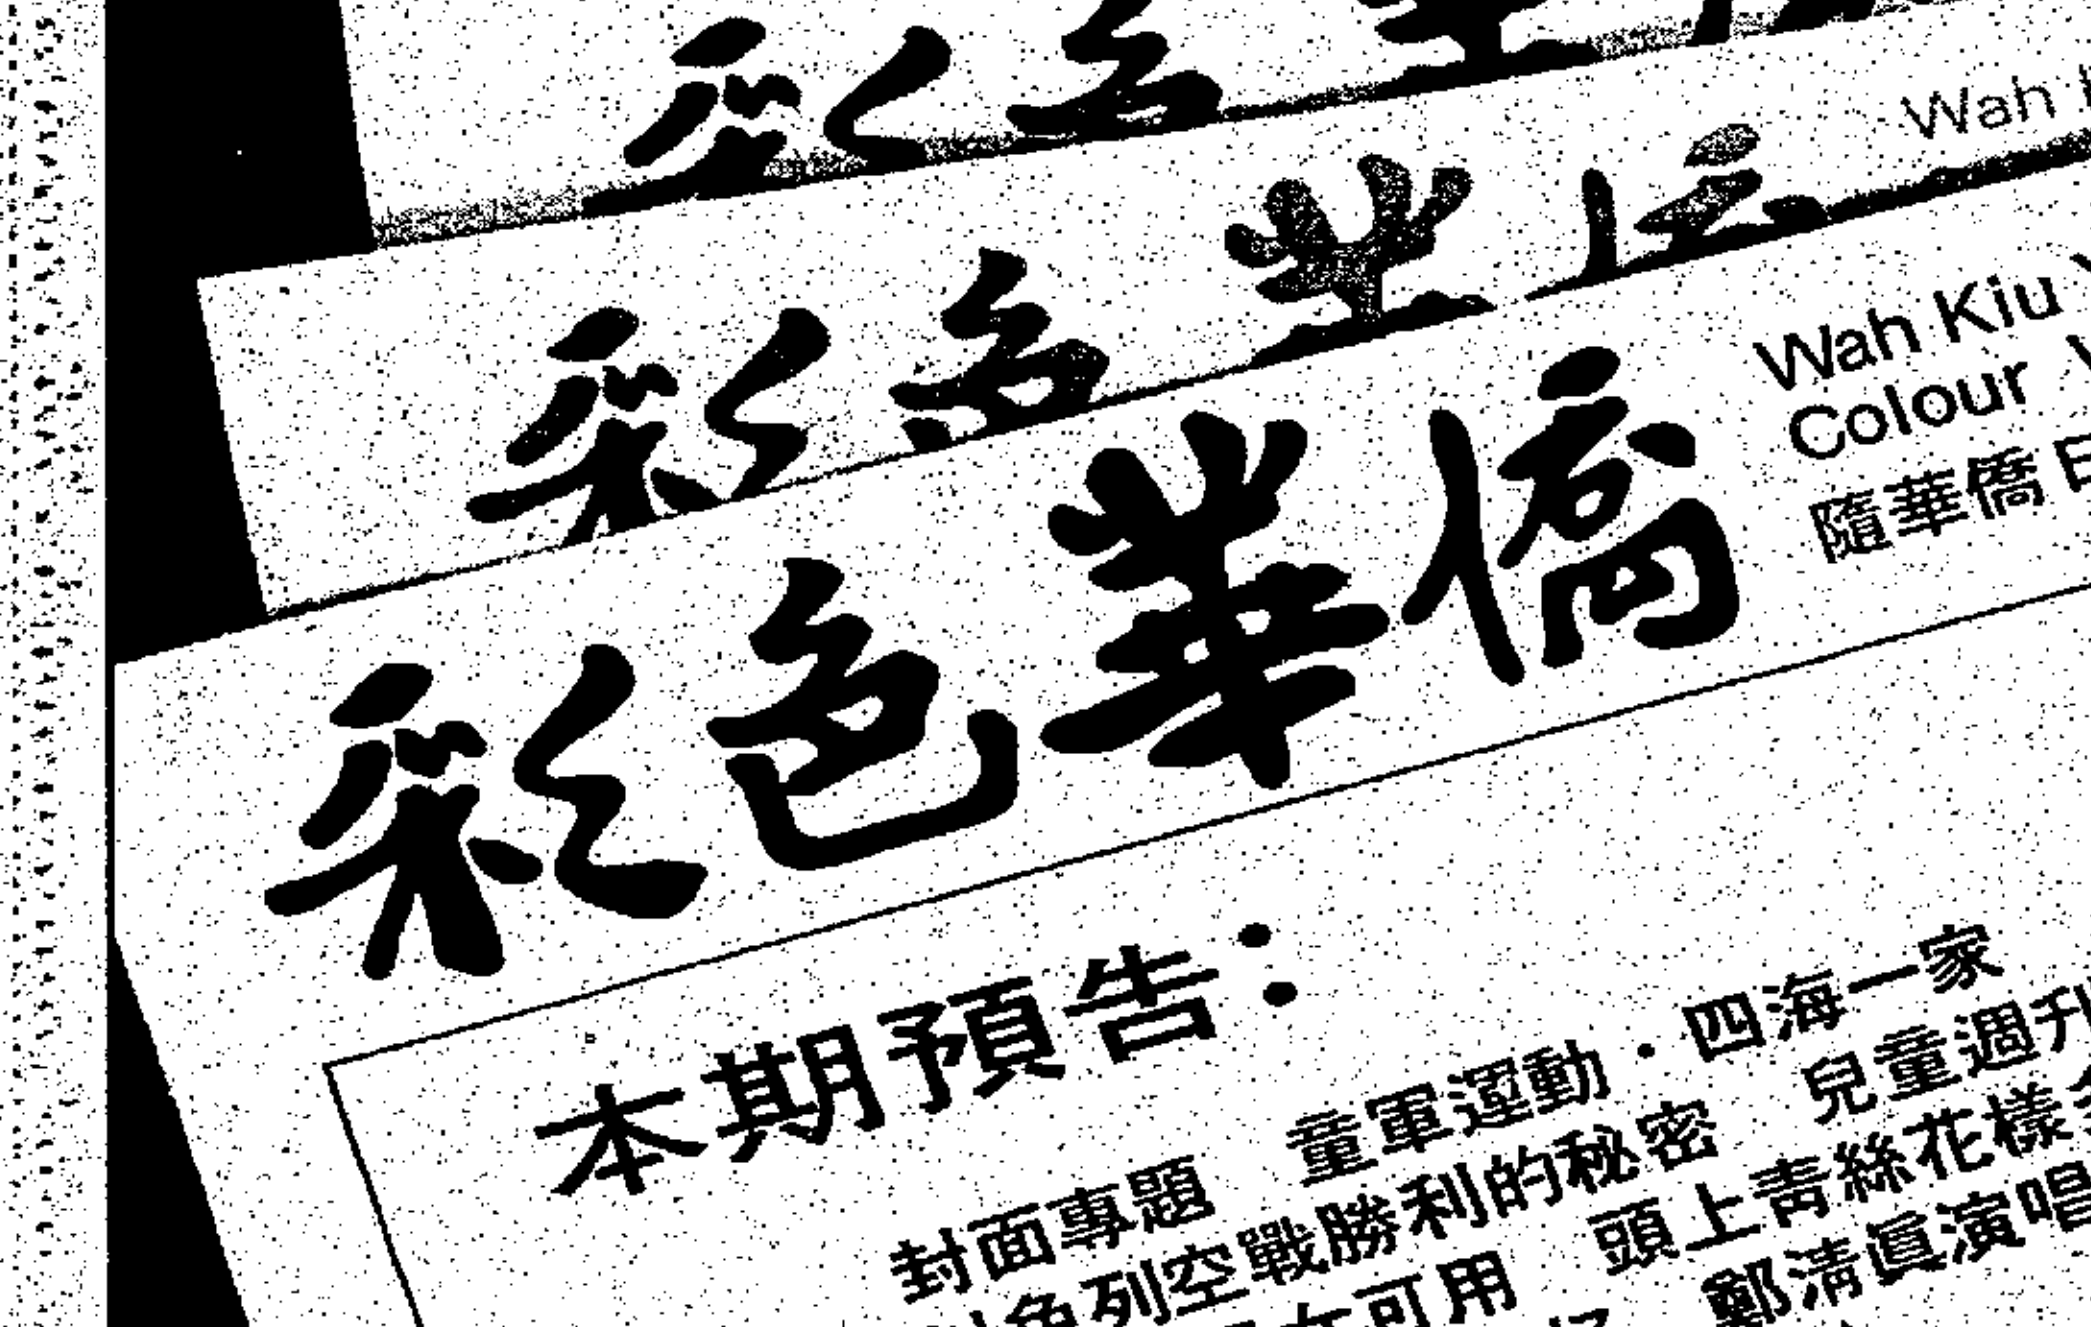 彩色
Wah
彩色
彩色華僑
Wah Kiu
Colour
隨華僑
本期預告：
封面專題 童軍運動・四海一家
色列空戰勝利的秘密 兒童週刊
可用 頭上青絲花樣
鄭清眞演唱